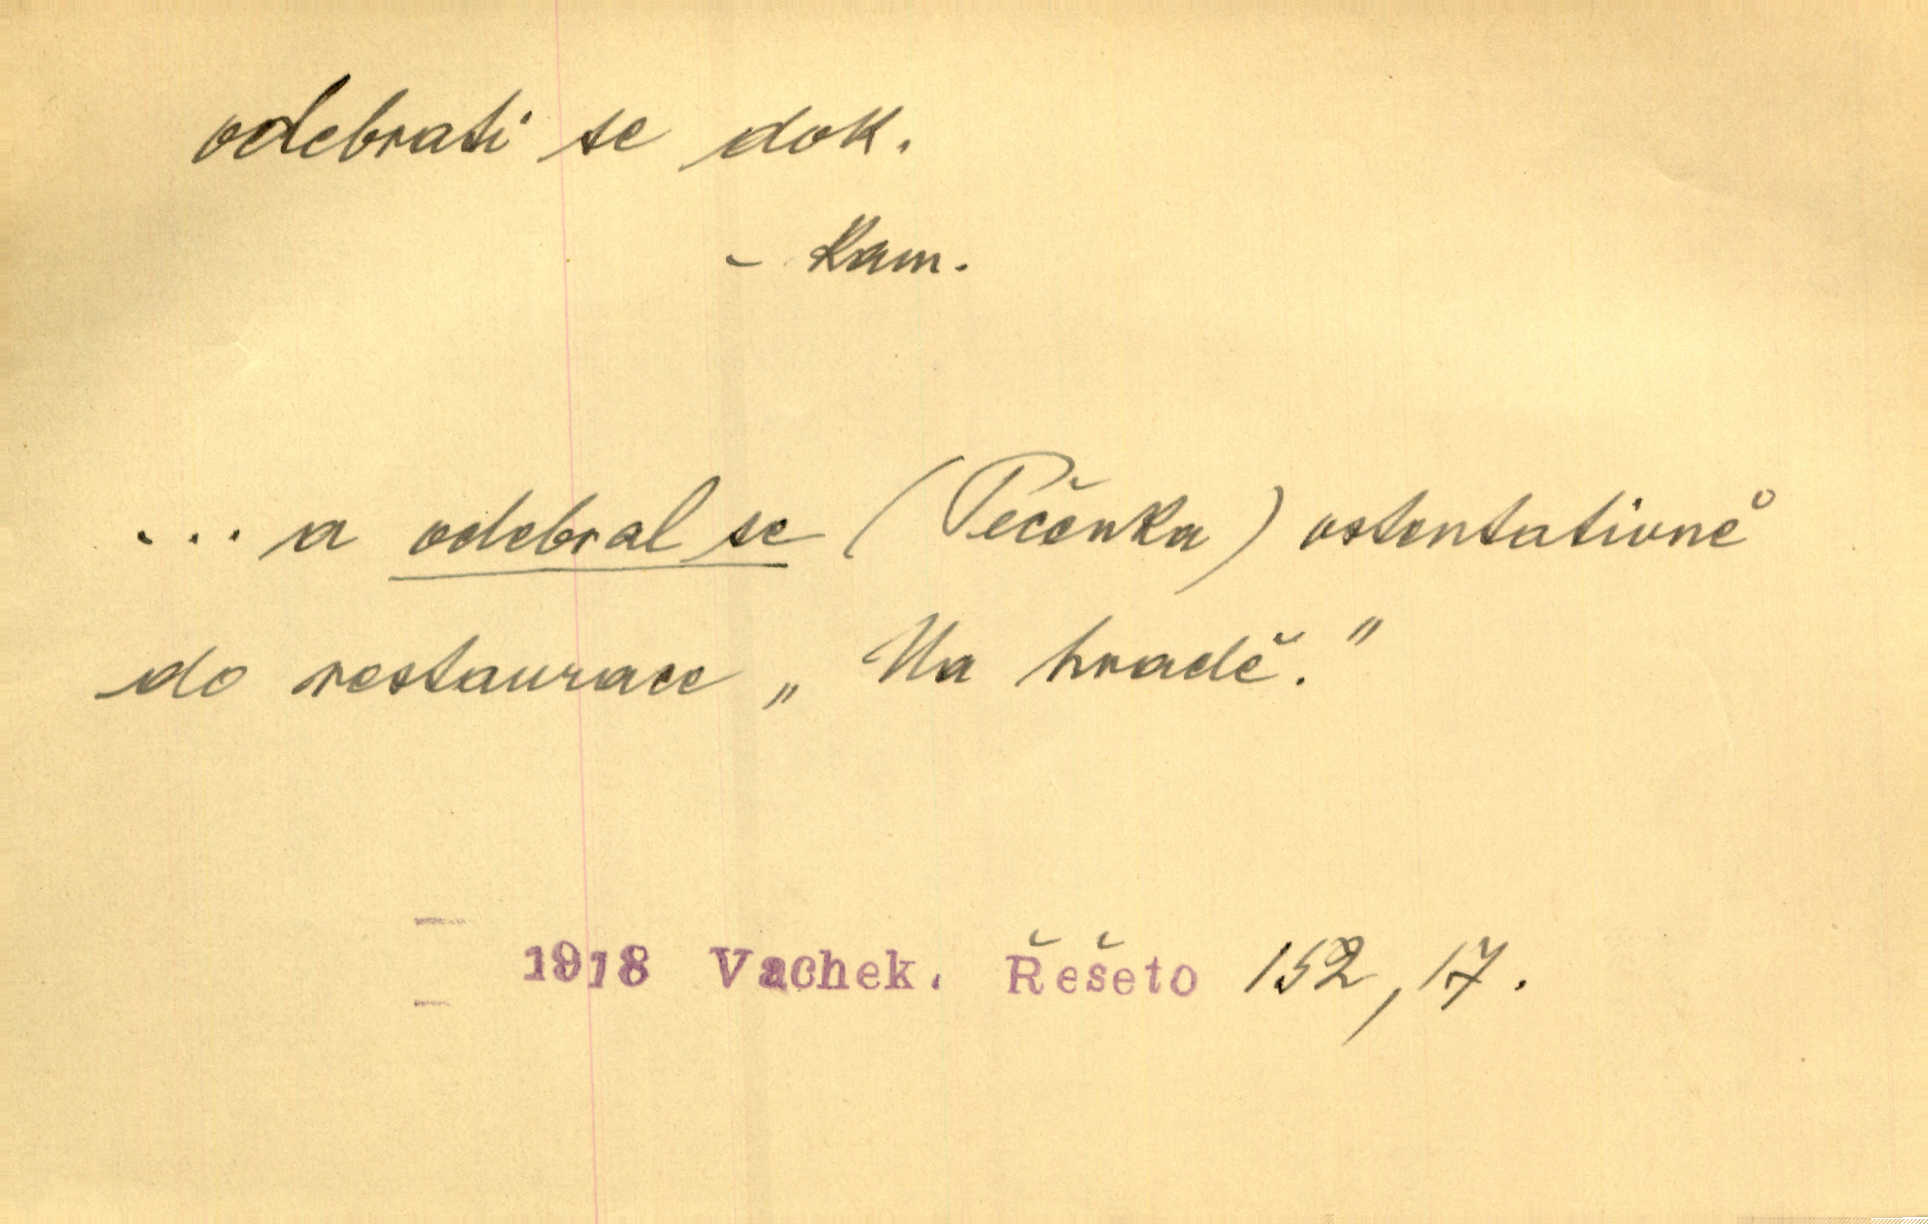 odebrati se dok.
- kam.
... a odebral se (Pečenka) ostentativně
do restaurace „Na hradě."
1918 Vachek. Řešeto 152, 17.